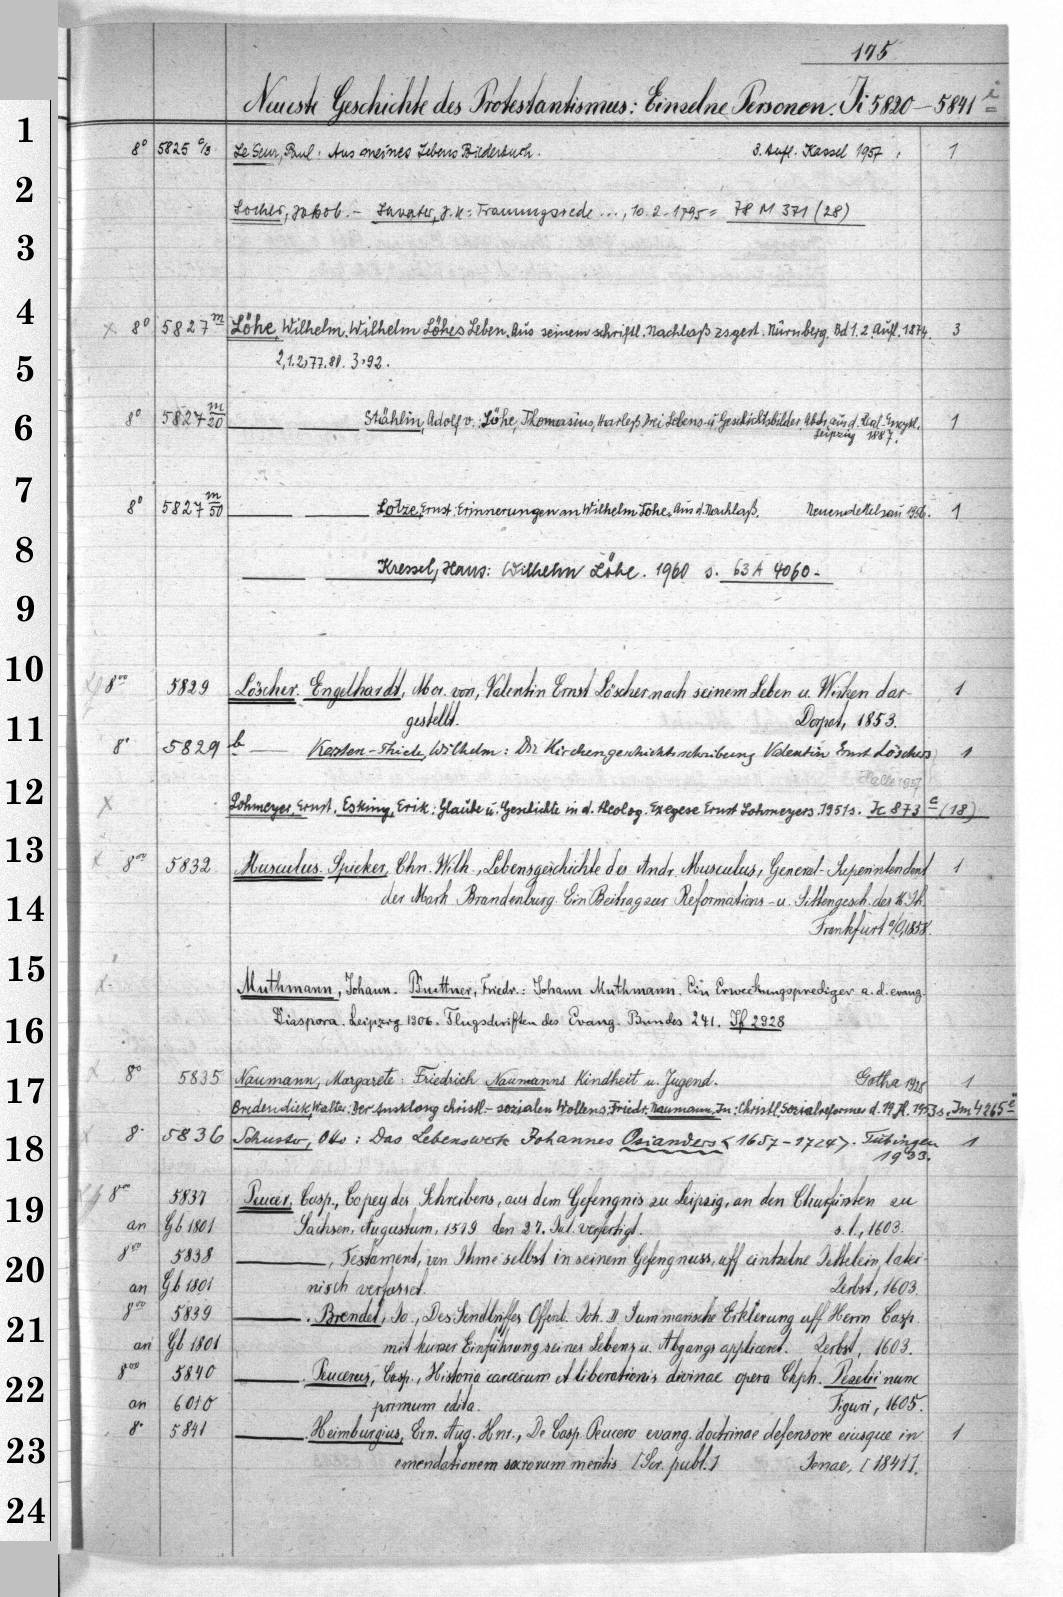 175
Neueste Geschichte des Protestantismus: Einzelne Personen. Ji 5820 – 5841 i
1
2
3
4
5
6
7
8
9
10
11
12
13
14
15
16
17
18
19
20
21
22
23
24
8° 5825 Le Seur, Paul: Aus meines Lebens Bilderbuch. 3. Aufl. Kassel 1957. 1
Locher, Jakob. – Lavater, J. K.: Trauungsrede ..., 10.2.1795 = 78 M 371 (28)
x 8° 5827 m Löhe, Wilhelm. Wilhelm Löhes Leben. Aus seinem schriftl. Nachlaß zsgest. Nürnberg. Bd 1. 2. Aufl. 1874. 3
2,1.2,77.80. 3,92.
8° 5827 m/20 Stählin, Adolf v.: Löhe, Thomasius, Harleß. Drei Lebens- u. Geschichtsbilder. Abdr. aus d. Real-Encykl. 1
Leipzig 1887.
8° 5827 m/50 Lotze, Ernst: Erinnerungen an Wilhelm Löhe. Aus d. Nachlaß. Neuendettelsau 1956. 1
Kressel, Hans: Wilhelm Löhe. 1960 s. 63 A 4060 –
8°° 5829 Löscher. Engelhardt, Mor. von, Valentin Ernst Löscher nach seinem Leben u. Wirken dar- 1
gestellt. Dorpat, 1853.
8° 5829 b — Kersten-Thiele, Wilhelm: Die Kirchengeschichtsschreibung Valentin Ernst Löschers 1
Halle 1937
x Lohmeyer, Ernst. Esking, Erik: Glaube u. Geschichte in d. theolog. Exegese Ernst Lohmeyers. 1951 s. Ic 873 c (18)
x 8°° 5832 Musculus. Spieker, Chn. Wilh., Lebensgeschichte des Andr. Musculus, General-Superintendent 1
der Mark Brandenburg. Ein Beitrag zur Reformations- u. Sittengesch. des 16. Jh.
Frankfurt a/O, 1858.
x Muthmann, Johann. Buettner, Friedr.: Johann Muthmann. Ein Erweckungsprediger a. d. evang.
Diaspora. Leipzig 1906. Flugschriften des Evang. Bundes 241. If 2928
x 8° 5835 Naumann, Margarete: Friedrich Naumanns Kindheit u. Jugend. Gotha 1928 1
Bredendiek, Walter: Der Ausklang christl.-sozialen Wollens, Friedr. Naumann. In: Christl. Sozialreformer d. 19. Jh. 1953 s. Jm 4265
x 8° 5836 Schuster, Otto: Das Lebenswerk Johannes Osianders <1657–1724>. Tübingen 1
1933.
8°° 5837 Peucer, Casp., Copey des Schreibens, aus dem Gefengnis zu Leipzig, an den Churfürsten zu
an Gb 1801 Sachsen, Augustum, 1579 den 27. Jul. verfertigt. s. l., 1603.
8°° 5838 —, Testament, von Ihme selbst in seinem Gefengnuss, uff eintzelne Zettelein, latei-
an Gb 1801 nisch verfasst. Zerbst, 1603.
8°° 5839 —. Brendel, Jo., Des Sendbriffes Offenb. Joh. II Summarische Erklerung uff Herrn Casp.
an Gb 1801 mit kurzer Einführung seines Lebens u. Abgangs appliceret. Zerbst, 1603.
8°°° 5840 —. Peucerus, Casp., Historia carcerum et liberationis divinae opera Chph. Pezelii nunc
an 6010 primum edita. Tiguri, 1605.
8° 5841 —. Heimburgius, Ern. Aug. Hnr., De Casp. Peucero evang. doctrinae defensore eiusque in 1
emendationem sacrorum meritis [Scr. publ.] Jenae, [1841].